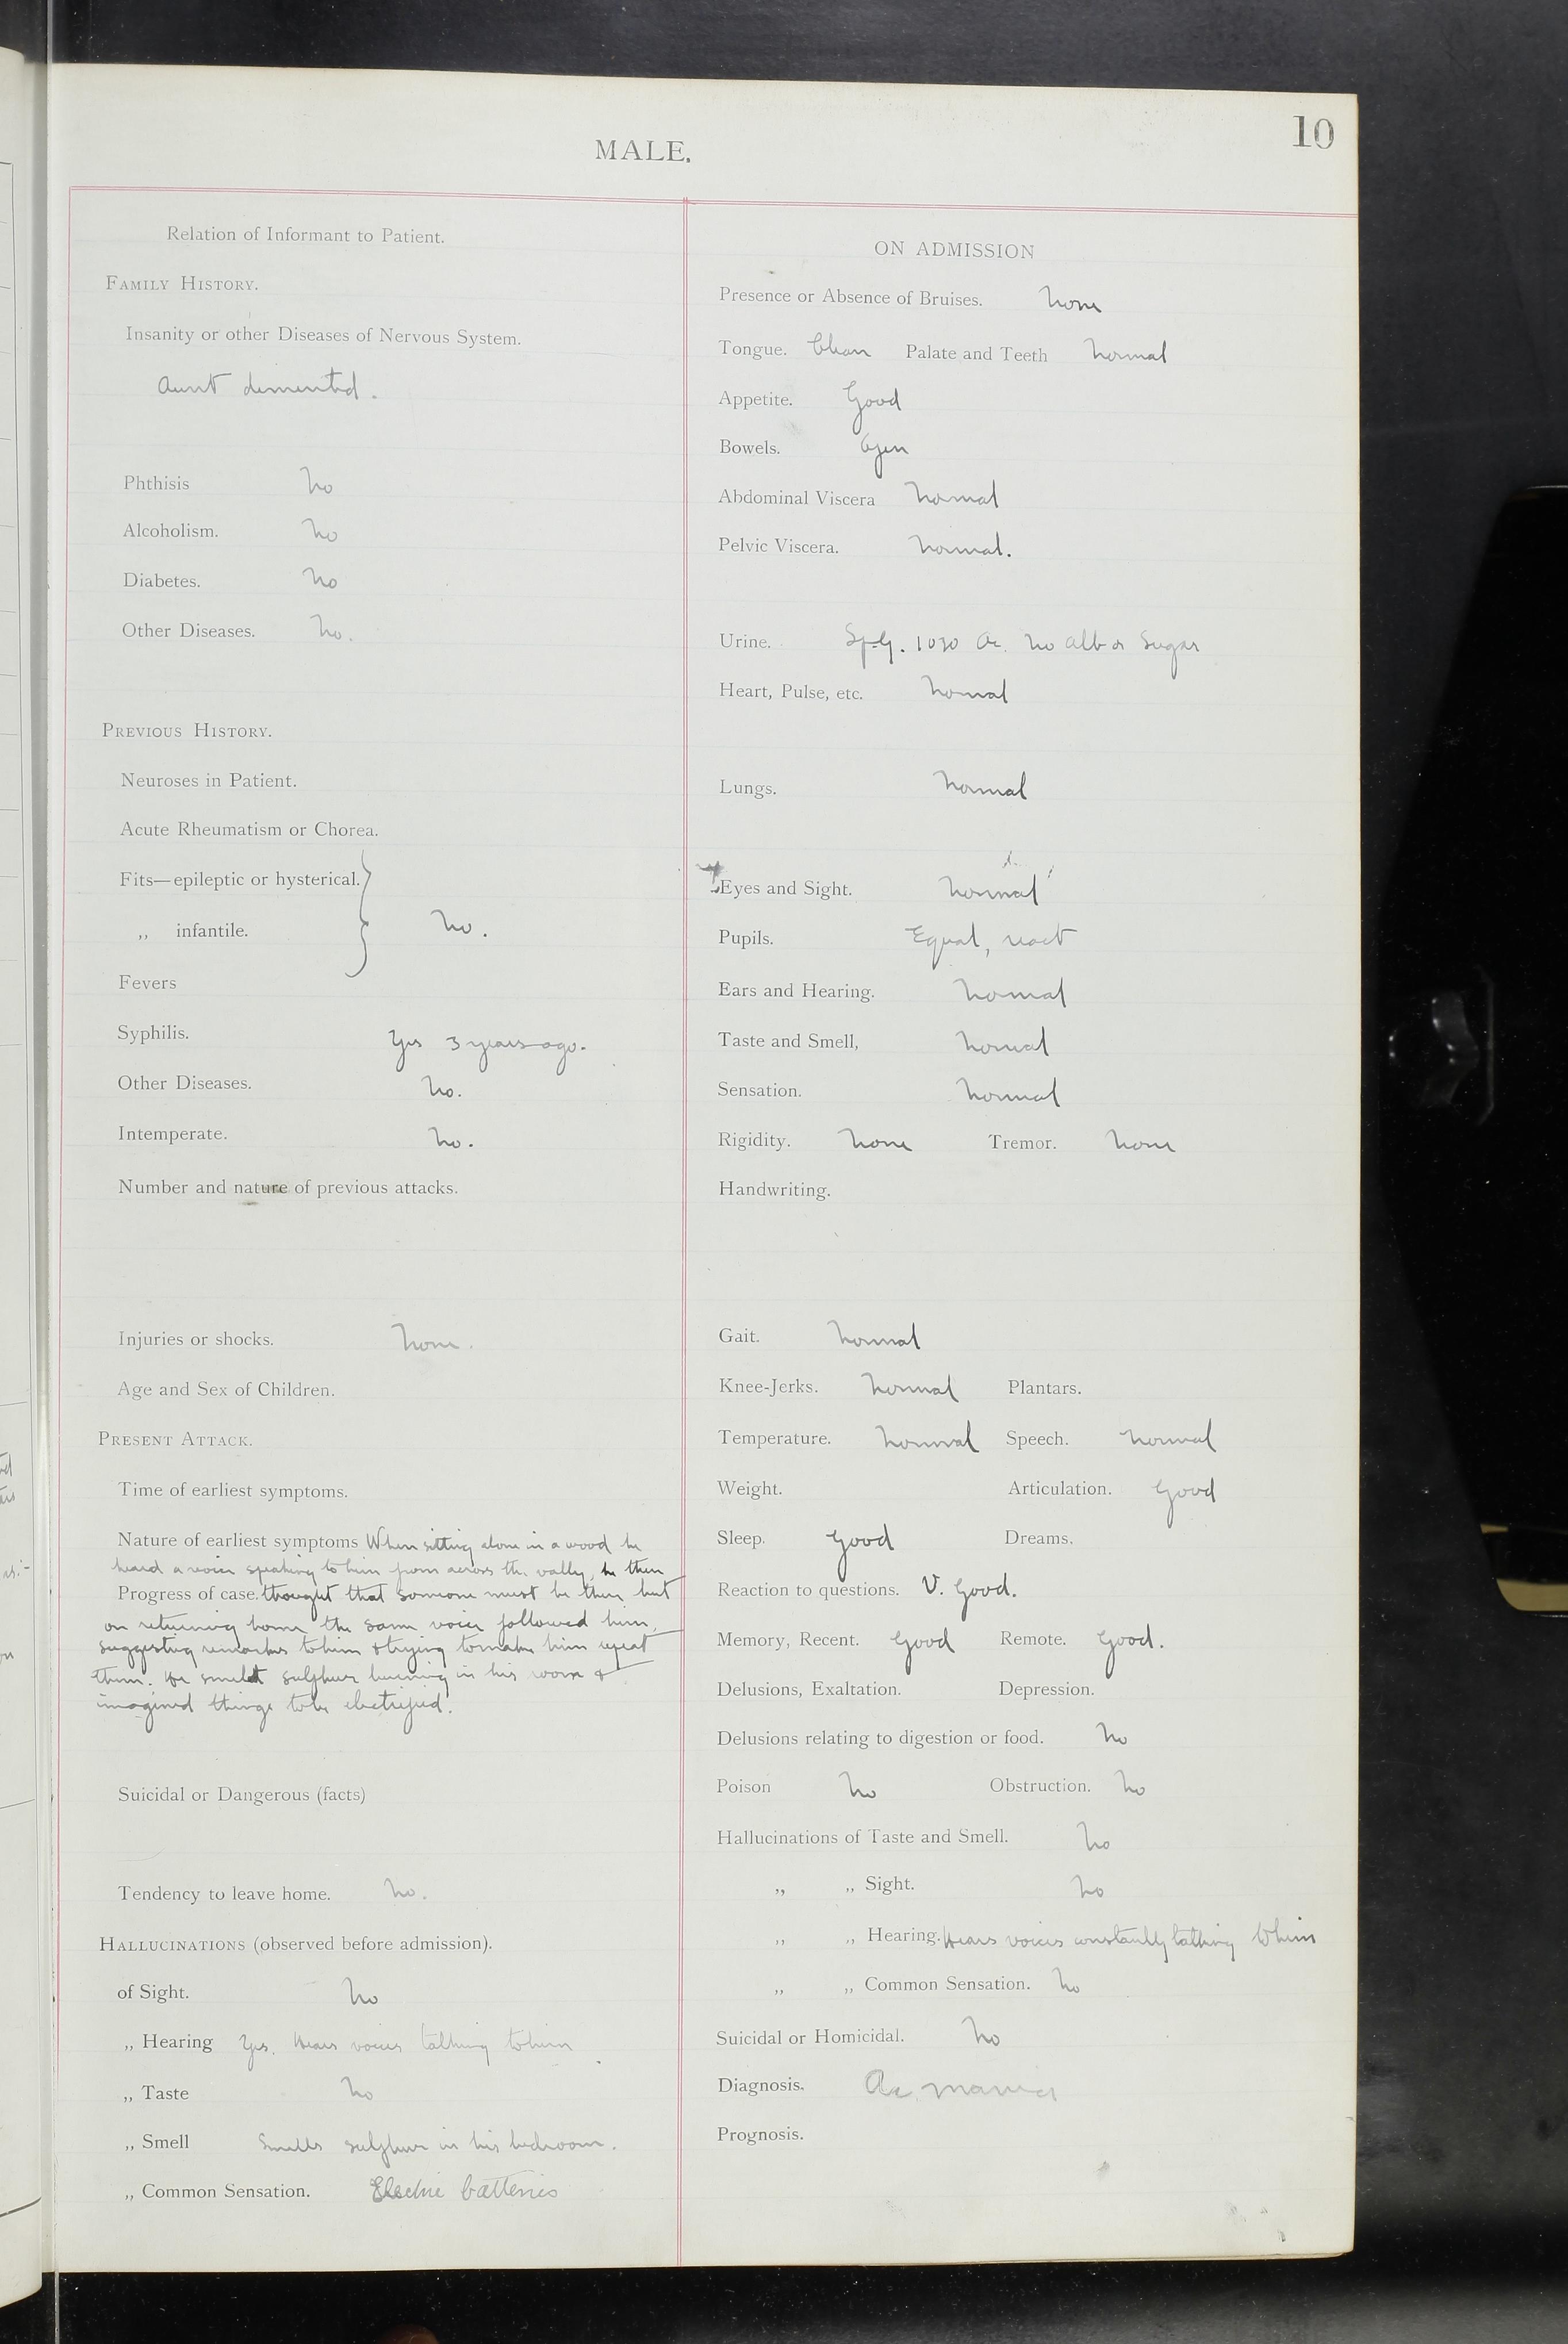 10
MALE.
Relation of Informant to Patient.
FAMILY HISTORY.
Insanity or other Diseases of Nervous System.
Aunt demented.
Phthisis No
Alcoholism. No
Diabetes. No
Other Diseases. No.
PREVIOUS HISTORY.
Neuroses in Patient.
Acute Rheumatism or Chorea.
Fits—epileptic or hysterical.
„ infantile. No.
Fevers
Syphilis. Yes 3 years ago.
Other Diseases. No.
Intemperate. No.
Number and nature of previous attacks.
Injuries or shocks. None.
Age and Sex of Children.
PRESENT ATTACK.
Time of earliest symptoms.
Nature of earliest symptoms When sitting alone in a wood he
heard a voice speaking to him from across the valley, he then
Progress of case. thought that someone must be there but
on returning home the same voice followed him,
suggesting remarks to him & trying to make him repeat
them. He smelt sulphur burning in his room &
imagined things to be electrified.
Suicidal or Dangerous (facts)
Tendency to leave home. No.
HALLUCINATIONS (observed before admission).
of Sight. No
„ Hearing Yes. Hears voices talking to him
„ Taste No
„ Smell Smells sulphur in his bedroom.
„ Common Sensation. Electric batteries
ON ADMISSION
Presence or Absence of Bruises. None
Tongue. Clean Palate and Teeth Normal
Appetite. Good
Bowels. Open
Abdominal Viscera Normal
Pelvic Viscera. Normal.
Urine. Sp.G. 1030 Ac. No alb or Sugar
Heart, Pulse, etc. Normal
Lungs. Normal
Eyes and Sight. Normal
Pupils. Equal, react
Ears and Hearing. Normal
Taste and Smell, Normal
Sensation. Normal
Rigidity. None Tremor. None
Handwriting.
Gait. Normal
Knee-Jerks. Normal Plantars.
Temperature. Normal Speech. Normal
Weight. Articulation. Good
Sleep. Good Dreams.
Reaction to questions. V. Good.
Memory, Recent. Good Remote. Good.
Delusions, Exaltation. Depression.
Delusions relating to digestion or food. No
Poison No Obstruction. No
Hallucinations of Taste and Smell. No
„ „ Sight. No
„ „ Hearing. Hears voices constantly talking to him
„ „ Common Sensation. No
Suicidal or Homicidal. No
Diagnosis. Ac. Mania
Prognosis.